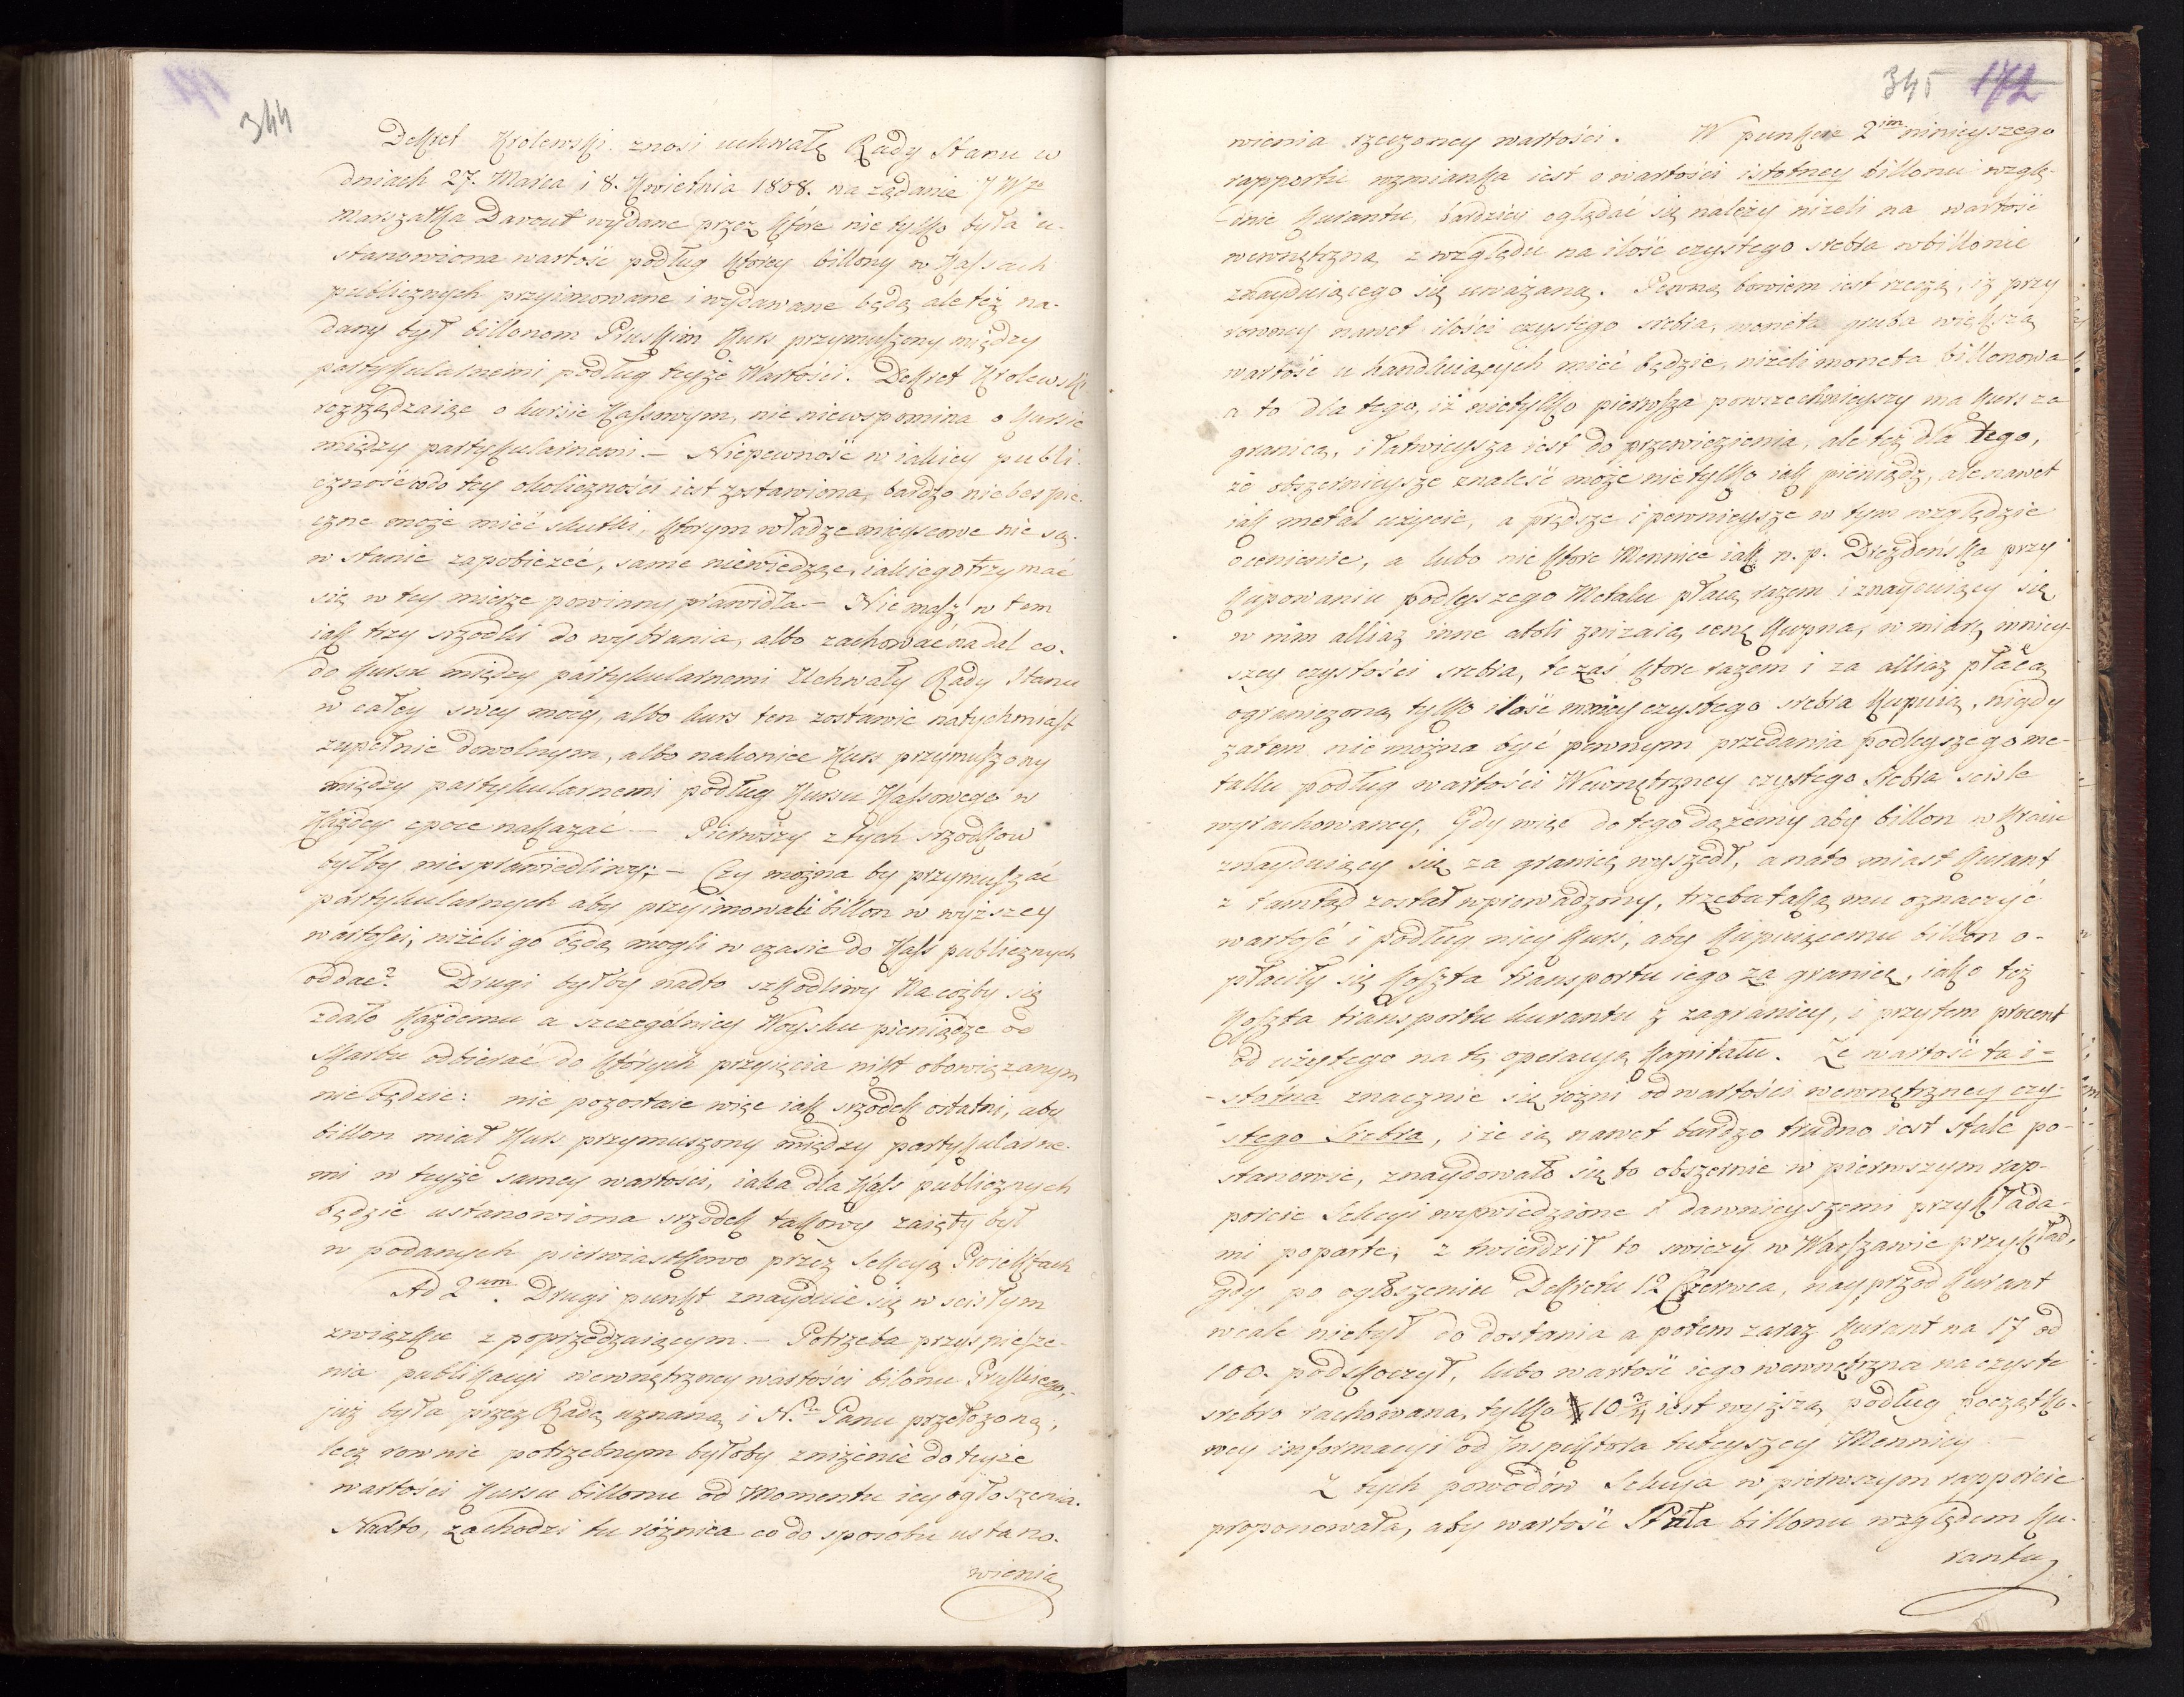 344
Dekret Krolewski znosi uchwałę Rady Stanu w
dniach 27. Marca i 8. Kwietnia 1808. na żądanie JWgo
Marszałka Davout wydane przez które nie tylko była u-
stanowiona wartość podług ktorey billony w Kassach
publicznych przyimowane i wydawane będą ale też na-
dany był billonom Pruskim Kurs przymuszony między
partykularnemi podług teyże Wartości. Dekret Krolewski
rozrządzaiąc o kursie Kassowym, nie niewspomina o Kursie
między partykularnemi. — Niepewność w iakiey publi-
czność codo tey okoliczności iest zostawiona, bardzo niebespie-
czne może mieć skutki, ktorym władze mieyscowe nie są
w stanie zapobieżeć, same niewiedząc, iakiego trzymać
się w tey mierze powinny prawidła — Nie masz w tem
iak trzy srzodki do wybrania, albo zachować nadal co-
do Kursu między partykularnemi Uchwały Rady Stanu
w całey swey mocy, albo kurs ten zostawić natychmiast
zupełnie dowolnym, albo nakoniec Kurs przymuszony
między partykularnemi podług Kursu Kassowego w
Każdey epoce nakazać — Pierwszy z tych srzodkow
byłby niesprawiedliwy; — Czy można by przymuszać
partykularnych aby przyimowali billon w wyższey
wartości, niżeli go będą mogli w czasie do Kass publicznych
oddać? Drugi byłby nadto szkodliwy Na cożby się
zdało Każdemu a szczególniey Woysku pieniądze od
Skarbu odbierać do których przyięcia nikt obowiązanym
nie będzie: nie pozostaie więc iak srzodek ostatni, aby
billon miał Kurs przymuszony między partykularne-
mi w teyże samey wartości, iaka dla Kass publicznych
będzie ustanowiona srzodek takowy zaięty był
w podanych pierwiastkowo przez Sekcyą Proiektach
Ad 2um. Drugi punkt znayduie się w scisłym
związku z poprzedzaiącym. — Potrzeba przyspiesze-
nia publikacyi wewnętrzney wartości bilonu Pruskiego,
już była przez Radę uznaną i N.u Panu przełożoną,
lecz rownie potrzebnym byłoby zniżenie do teyże
wartości Kursu billonu od Momentu iey ogłoszenia.
Nadto, zachodzi tu różnica co do sposobu ustano-
wienia
345 172
wienia rzeczoney wartości. W punkcie 2im ninieyszego
rapportu wzmianka iest o wartości istotney billonu wzglę-
dnie Kurantu, bardziey oglądać się należy niżeli na wartość
wewnętrzną z względu na ilość czystego srebra w billonie
znayduiącego się uważaną. Pewną bowiem iest rzeczą, iż przy
rowney nawet ilości czystego srebra, moneta gruba większą
wartość u handluiących mieć będzie, niżeli moneta billonowa
a to dla tego, iż nietylko pierwsza powszechnieyszy ma Kurs za
granicą, i łatwieysza iest do przewiezienia, ale też dla tego,
że obszernieysze znaleść może nie tylko iak pieniądz, ale nawet
iak metal użycie, a prędsze i pewnieysze w tym względzie
ocenienie, a lubo nie ktore Mennice iak n. p. Drezdeńska przy
Kupowaniu podleyszego Metalu płacą razem i znayduiący się
w nim alliaż inne atoli zniżaią cenę Kupna, w miarę mniey-
szey czystości srebra, te zaś ktore razem i za alliaż płacą
ograniczoną tylko ilość mniey czystego srebra Kupuią, nigdy
zatem nie można być pewnym przedania podleyszego me-
tallu podług wartości Wewnętrzney czystego Srebra scisle
wyrachowaney, Gdy więc do tego dążemy aby billon w Kraiu
znayduiący się za granicę wyszedł, a nato miast Kurant
z tamtąd został wprowadzony, trzeba taką mu oznaczyć
wartość i podług niey Kurs, aby Kupuiącemu billon o-
płaciły się Koszta transportu iego za granicę, iako też
Koszta transportu kurantu z zagranicy, i przytem procent
od użytego na tę operacyą Kapitału. Że wartość ta i-
stotna znacznie się rożni od wartości wewnętrzney czy-
stego Srebra, i że ią nawet bardzo trudno iest stale po-
stanowić, znaydowało się to obszernie w pierwszym rap-
porcie Sekcyi wywiedzione i dawnieyszemi przykłada-
mi poparte, z twierdził to swieży w Warszawie przykład,
Gdy po ogłoszeniu Dekretu 12 Czerwca, nayprzod Kurant
wcale niebył do dostania a potem zaraz Kurant na 17 od
100. podskoczył, lubo wartość iego wewnętrzna na czyste
srebro rachowana, tylko 10 3/4 iest wyższą podług początko-
wey informacyi od Inspektora tuteyszey Mennicy —
Z tych powodów Sekcya w pierwszym rapporcie
proponowała, aby wartość Stała billonu względem Ku-
rantu